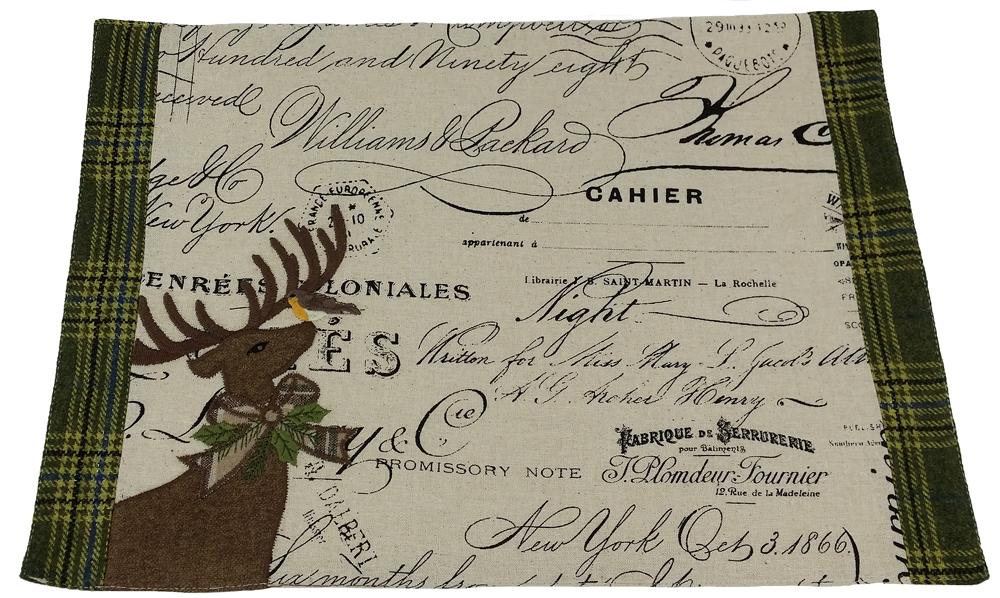 29 III 33 12 50
PAQUEBOTS
Hundred and Ninety eight
received
Williams & Packard
Thomas C
ge & Co
New York.
FRANCE EUROPÉENNE
CAHIER
de
appartenant à
ENRÉES COLONIALES
Librairie J. B. SAINT-MARTIN — La Rochelle
Night
ÉS
Written for Miss Mary L. Jacob's Al
A. G. Archer Henry
y & Cie
PROMISSORY NOTE
FABRIQUE DE SERRURERIE
pour Bâtiments
J. Plomdeur-Fournier
12, Rue de la Madeleine
DALBERT
New York Oct 3. 1866.
six months